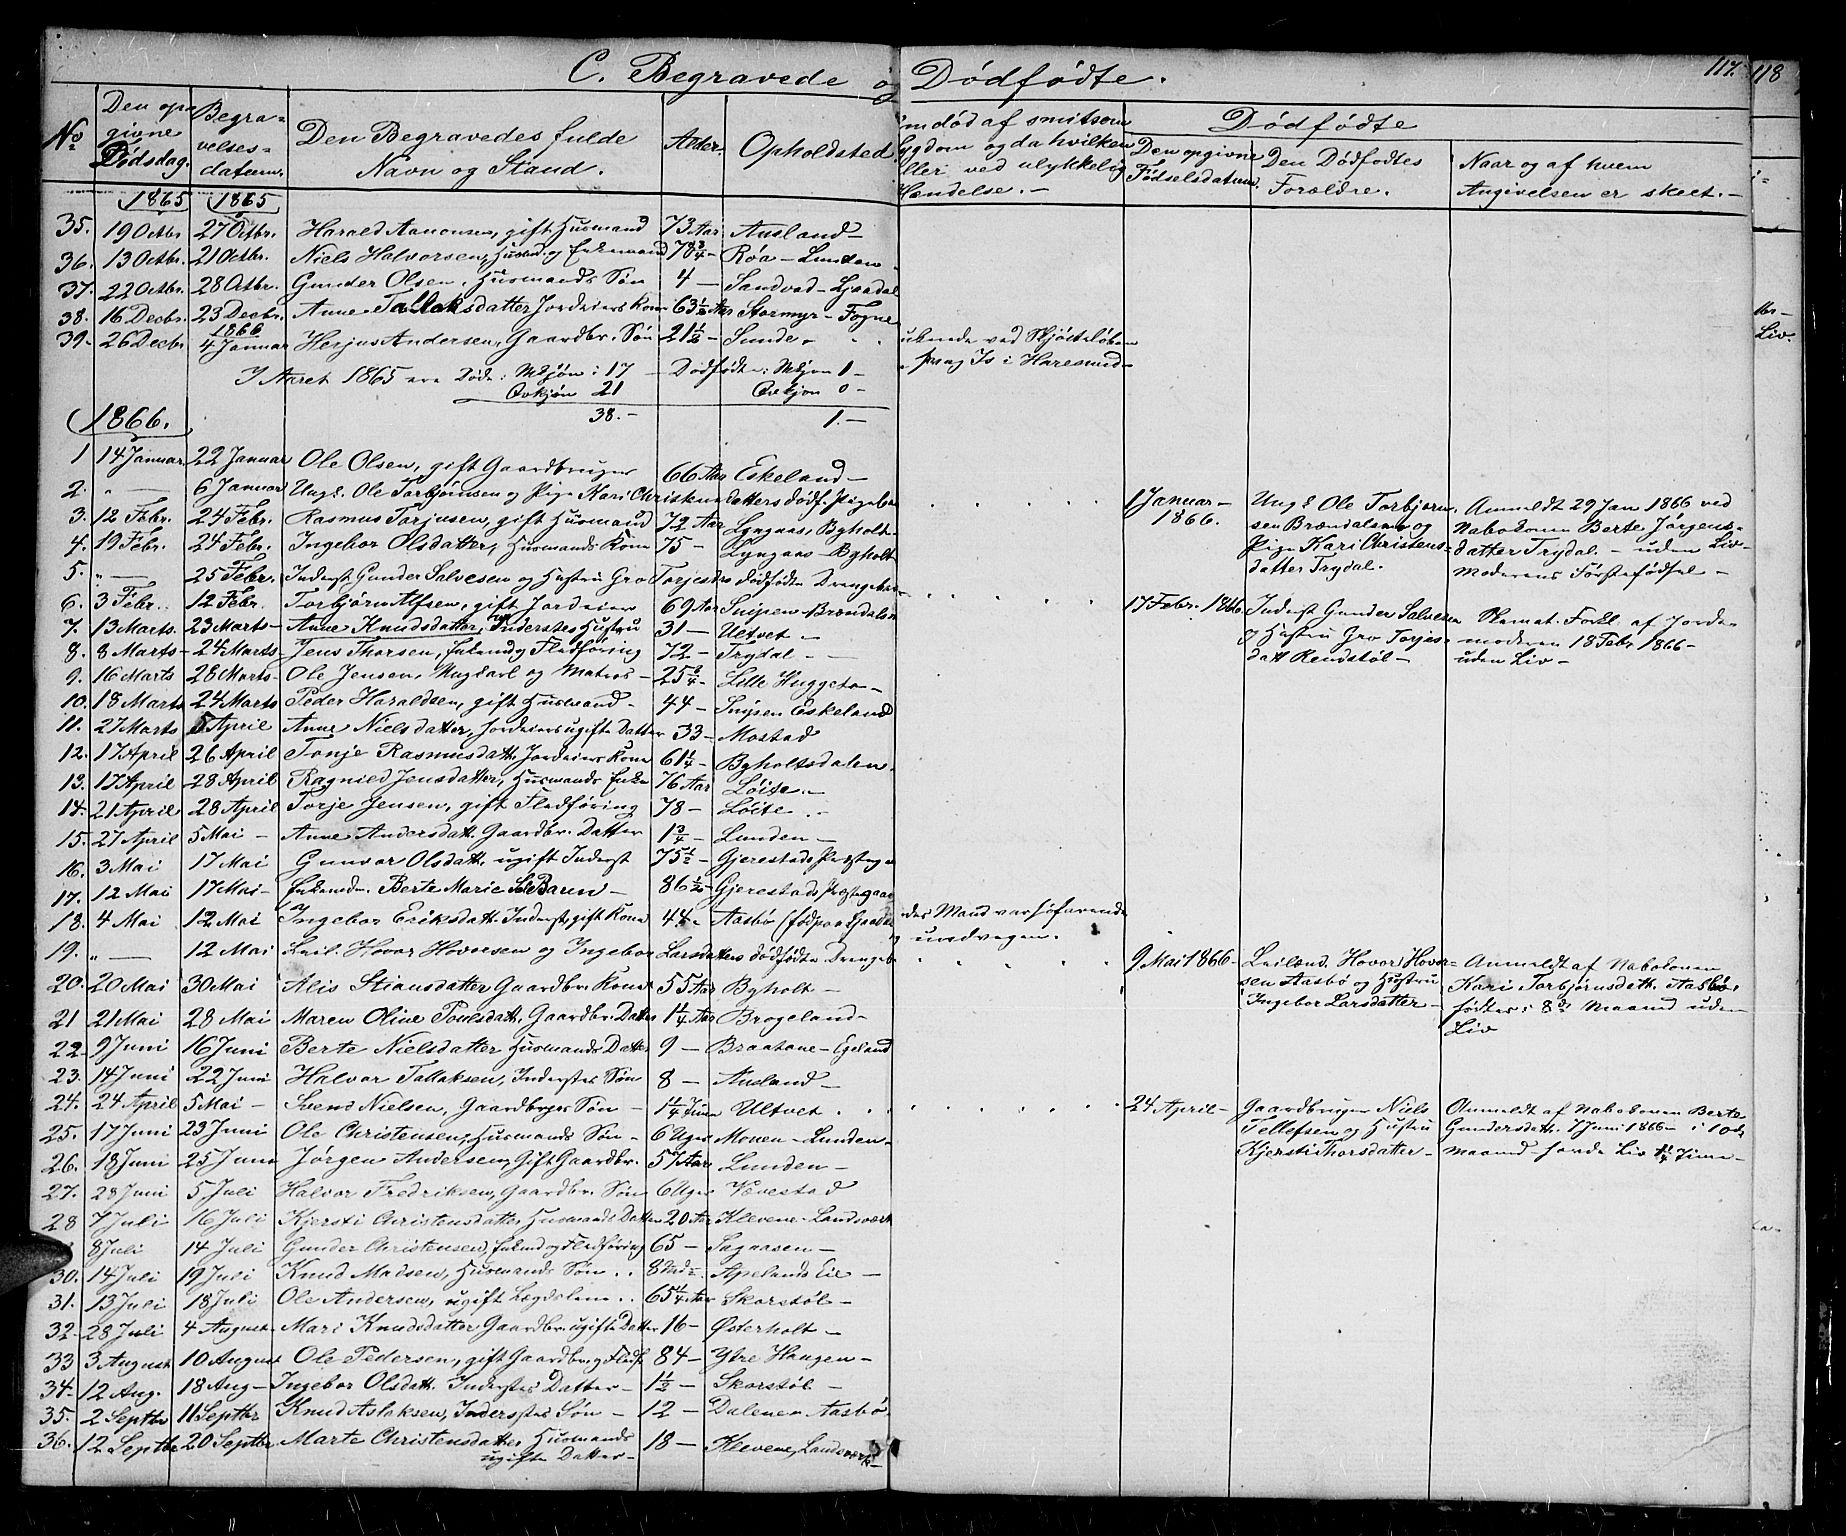 C. Begravede og Dødfødte.
117. 118
No
Den opgivne Dødsdag.
Begravelsesdatum.
Den Begravedes fulde Navn og Stand.
Alder.
Opholdsted
Om død af smitsom Sygdom og da hvilken eller ved ulykkelig Hændelse.
Dødfødte
Den opgivne Fødselsdatum.
Den Dødfødtes Forældre.
Naar og af hvem Angivelsen er skeet.
1865 1865
35. 19 Octbr. 27 Octbr. Harald Aanonsen, gift Husmand 73 Aar Ausland
36. 13 Octbr. 21 Octbr. Niels Halvorsen, Husmd. og Enkemand 78 3/4 - Røa - Lunden
37. 22 Octbr. 28 Octbr. Gunder Olsen, Husmands Søn 4 - Sandvad - Ljaadal
38. 16 Decbr. 23 Decbr. Anne Tallaksdatter Jordeiers Kone 63 1/2 Aar Stormyr - Fogne
39. 26 Decbr 1866 4 Januar Herjus Andersen, Gaardbr. Søn 21 1/2 - Sunde - druknede ved Skjøiteløben paa Is i Haresund
I Aaret 1865 ere Døde: Mkjøn: 17 - Dødfødte: Mkjøn 1 -
Qvkjøn 21 Qvkjøn 0 -
38. - 1. -
1866.
1 14 Januar 22 Januar Ole Olsen, gift Gaardbruger 66 Aar Eskeland -
2. " - 6 Januar Ungk. Ole Torbjørnsen og Pige Kari Christensdatters dødf. Pigebarn 1 Januar 1866. Ungk. Ole Torbjørnsen Brændalsmo og Pige Kari Christensdatter Trydal. Anmeldt 29 Jan 1866 ved Nabokonen Berte Jørgensdatter Trydal. - uden Liv - Moderens Førstefødsel -
3. 12 Febr. 24 Febr. Rasmus Torjusen, gift Husmand 72 Aar Lyngaas, Byholt -
4. 19 Febr. 24 Febr. Ingebor Olsdatter, Husmands Kone 75 - Lyngaas - Byholt
5. " - 25 Febr. Inderst Gunder Salvesen og Hustru Gro Torjesdrs dødfødte Drengebarn 17 Febr. 1866. Inderst Gunder Salvesen og Hustru Gro Torjesdatt Rendstøl - Skemat. Forkl. af Jordemoderen 18 Febr 1866 - uden Liv -
6. 3 Febr. 12 Febr. Torbjørn Alfsen, gift Jordeier 69 Aar Snipen - Brændalsmo
7. 13 Marts. 23 Marts - Anne Knudsdatter, Inderstes Hustru 31 - Ultvet -
8. 8 Marts - 24 Marts - Jens Thorsen, Enkemd og Fledføring 72 - Trydal -
9. 16 Marts 28 Marts - Ole Jensen, Ungkarl og Matros - 25 3/4 - Lille Huggeto -
10. 18 Marts 24 Marts Peder Haraldsen, gift Husmand - 44 - Snipen Eskeland
11. 27 Marts 5 April Anne Nielsdatter, Jordeiers ugifte Datter 33 - Mostad
12. 17 April 26 April Tonje Rasmusdatt. Jordeiers Kone 61 1/4 - Byholtsdalen.
13. 17 April 28 April Ragnild Jensdatter, Husmands Enke 76 Aar Løite. -
14. 21 April 28 April Torje Jensen, gift Fledføring 78 - Løite. -
15. 27 April 5 Mai - Anne Andersdatt. Gaardbr. Datter 1 3/4 - Lunden -
16. 3 Mai 17 Mai Gunvor Olsdatt. ugift Inderst 75 1/2 - Gjerestads Præsteg
17. 12 Mai 17 Mai - Enkemd. Berte Marie Barun - 86 1/2 - Gjerestads Præstegaard
18. 4 Mai 12 Mai Ingebor Eriksdatt. Inderst, gift Kone 44 - Aasbø (fød paa Ljaadal des Mand var søfarende og undvegen.
19. " - 12 Mai Leil. Hovor Hovorsen og Ingebor Larsdatters dødfødte Drengeb 9 Mai 1866 - Leilænd. Hovor Hovorsen Aasbø og Hustru Ingebor Larsdatter - Anmeldt af Nabokonen Kari Torbjørnsdatt. Aasbø. fødtes i 8de Maaned uden Liv
20. 20 Mai 30 Mai Alis Stiansdatter Gaardbr. Kone 55 Aar Byholt -
21 21 Mai 28 Mai Maren Oline Poulsdatt. Gaardbr. Datter 1 1/4 Aar Brogeland -
22 - 9 Juni 16 Juni Berte Nielsdatter Husmands Datter 9 - Braatane - Egeland
23. 14 Juni 22 Juni Halvor Tallaksen, Inderstes Søn 8 - Ausland -
24. 24 April 5 Mai - Svend Nielsen, Gaardbrgrs Søn - 1 1/4 Time Ultvet. 24 April - Gaardbruger Niels Tellefsen og Hustru Kjersti Thorsdatter - Anmeldt af Nabokonen Berte Gundersdatt. 7 Juni 1866 - i 10de Maaned - havde Liv 1 1/4 Time -
25. 17 Juni 23 Juni Ole Christensen, Husmands Søn - 6 Uger Monen - Lunden -
26. 18 Juni 25 Juni Jørgen Andersen, Gift Gaardbr. 57 Aar Lunden -
27. 28 Juni 5 Juli Halvor Fredriksen, Gaardbr. Søn 6 Uger Vævestad
28 7 Juli 16 Juli Kjersti Christensdatter Husmands Datter 20 Aar Klevene - Landsværk
8 Juli 14 Juli Gunder Christensen, Enkmd og Fledføring 65 - Sagaasen -
30. 14 Juli 19 Juli Knud Madsen, Husmands Søn . . 8 Apelands Eie -
31. 13 Juli 18 Juli Ole Andersen, ugift Lægdslem . . 65 1/4 Aar Skorstøl -
32 - 28 Juli 4 August - Mari Knudsdatter, Gaardbr. ugifte Datter 16 - Østerholt -
33 3 August 10 August Ole Pedersen, gift Gaardbr. og Fledf. 84 - Ytre Haugen -
34 - 12 Aug. 18 Aug - Ingebor Olsdatt. Inderstes Datter - 1 1/2 - Skorstøl -
35. 2 Septbr 11 Septbr Knud Aslaksen, Inderstes Søn - 12 - Dalene - Aasbø.
36. 12 Septbr 20 Septbr Marte Christensdatter Husmands ugifte Datter - 18 - Klevene, Landsværk -